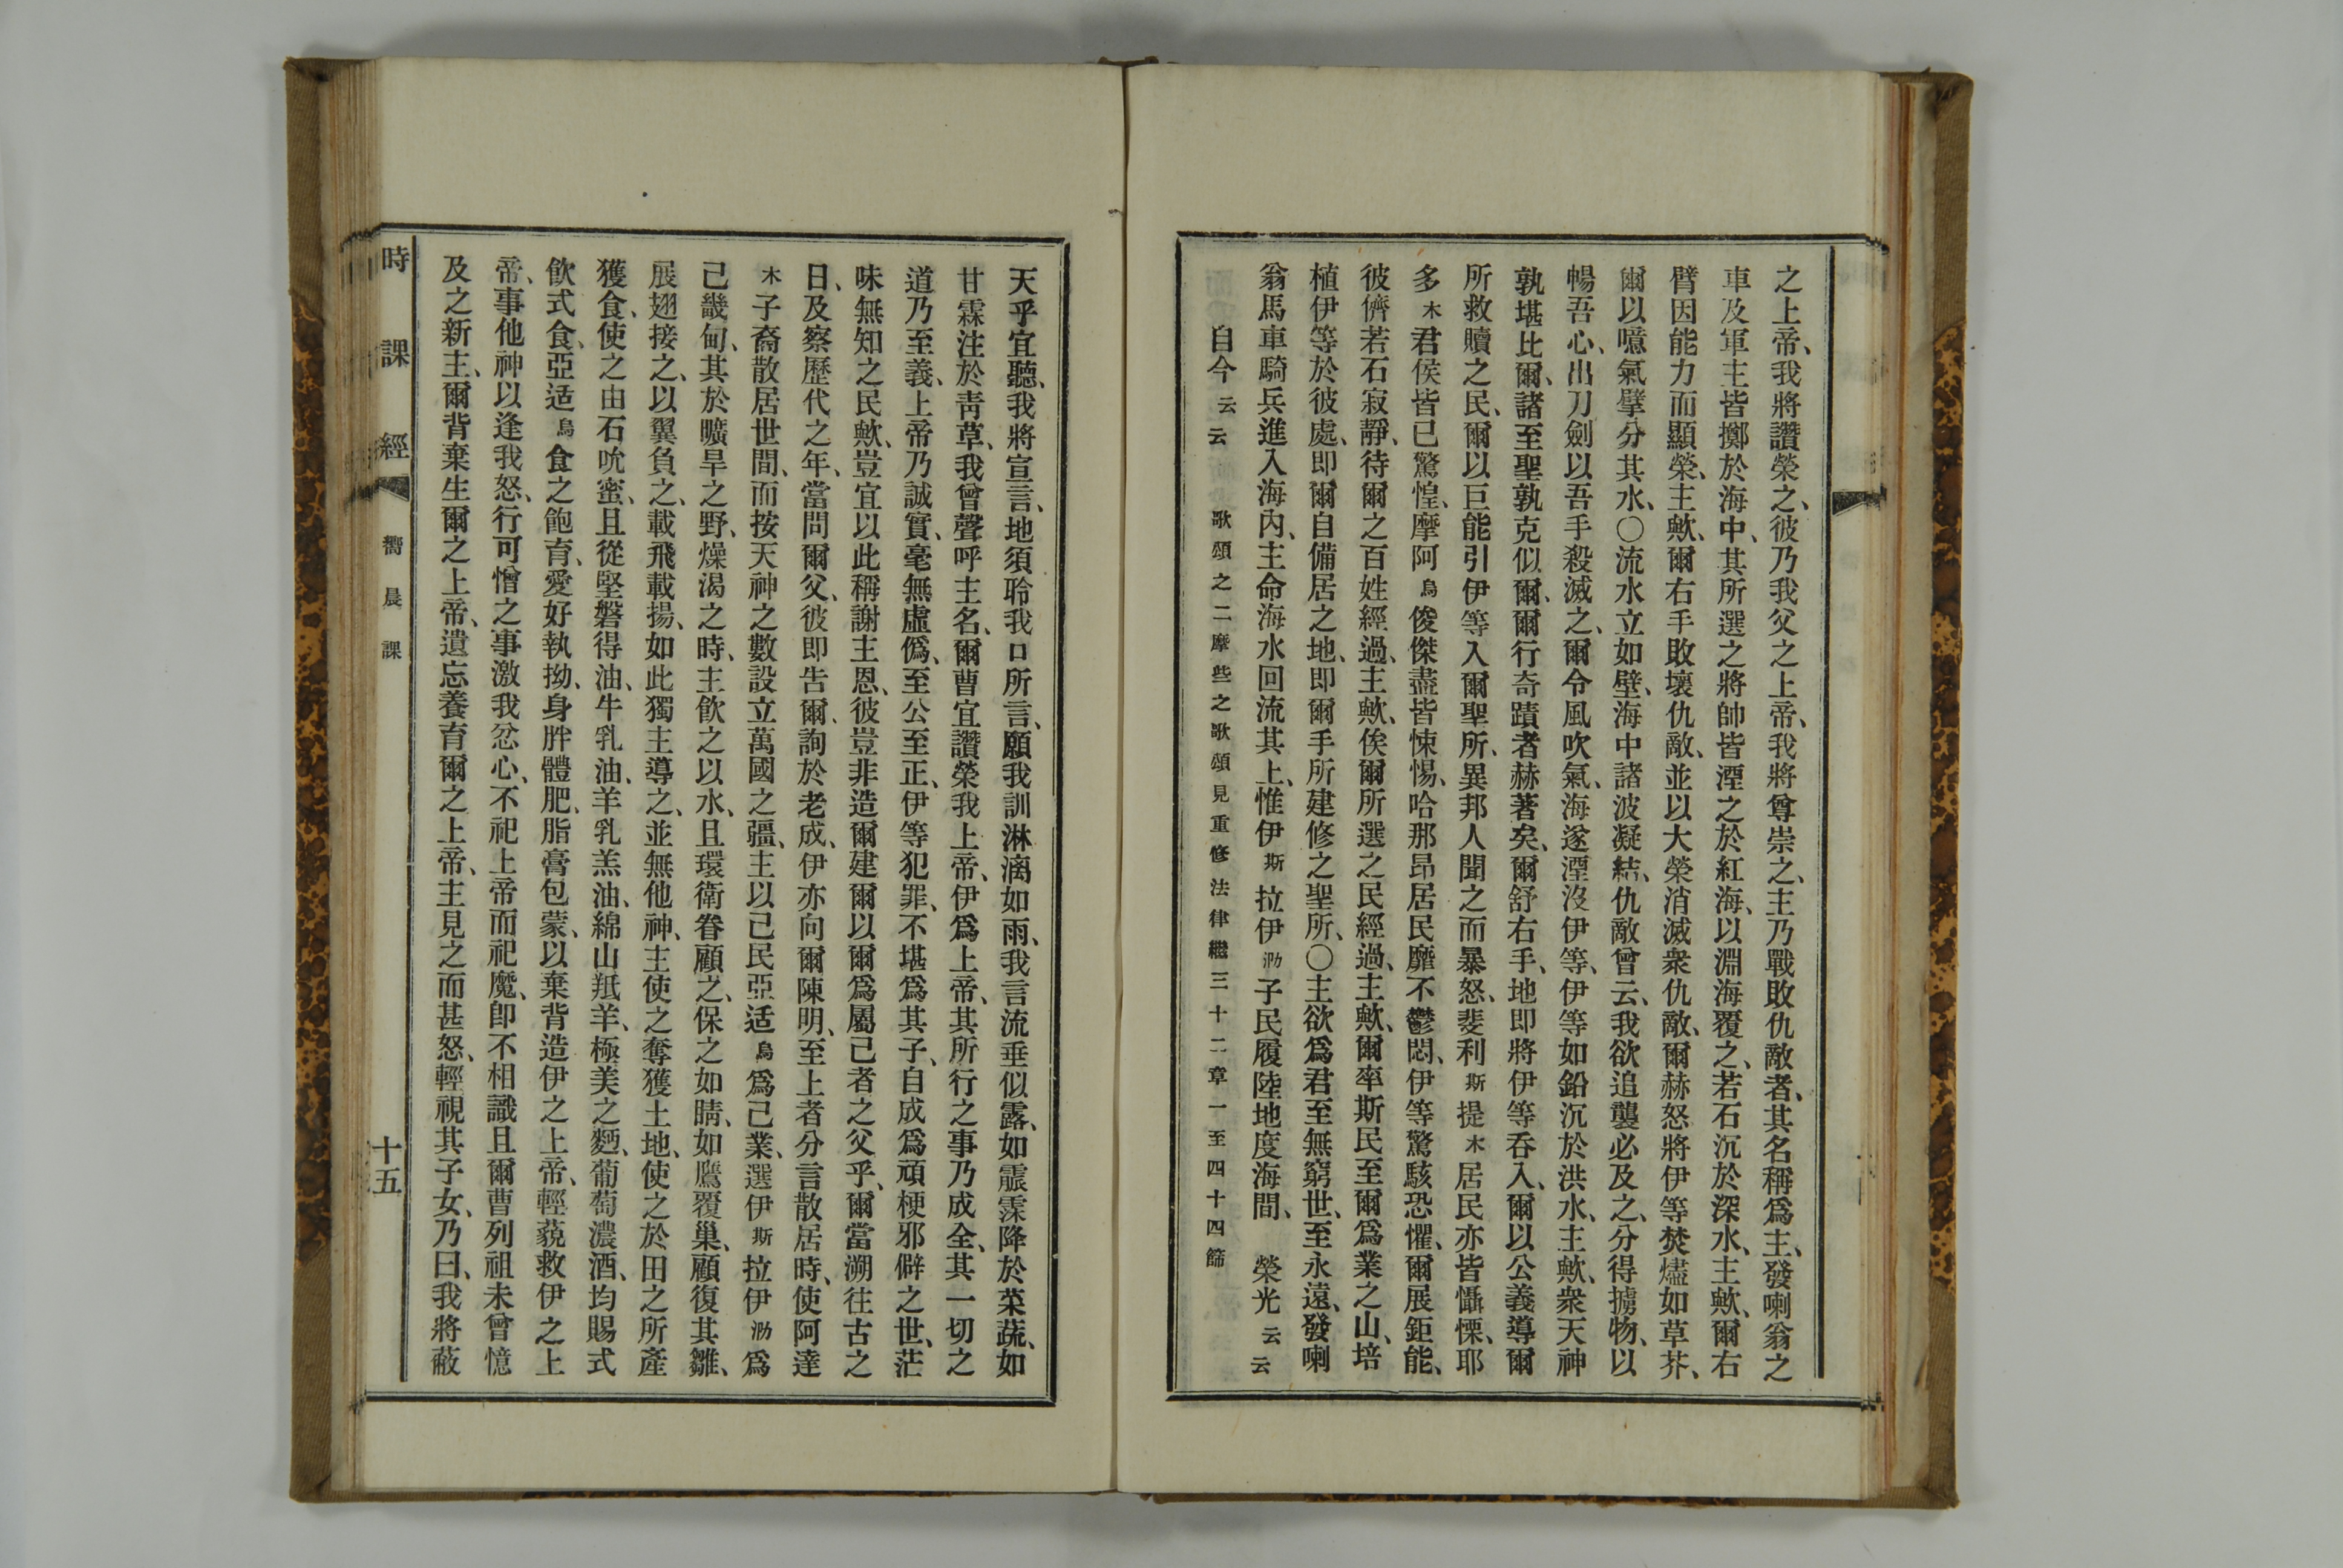 之上帝、我將讚榮之、彼乃我父之上帝、我將尊崇之、主乃戰敗仇敵者、其名稱爲主、發喇翁之
車及軍主皆擲於海中、其所選之將帥皆湮之於紅海、以淵海覆之、若石沉於深水、主歟、爾右
臂因能力而顯榮、主歟、爾右手敗壞仇敵、並以大榮消滅衆仇敵、爾赫怒將伊等焚燼如草芥、
爾以噫氣擘分其水、〇流水立如壁、海中諸波凝結、仇敵曾云、我欲追襲必及之、分得擄物、以
暢吾心、出刀劍以吾手殺滅之、爾令風吹氣、海遂湮沒伊等、伊等如鉛沉於洪水、主歟、衆天神
孰堪比爾、諸至聖孰克似爾、爾行奇蹟者赫著矣、爾舒右手、地即將伊等吞入、爾以公義導爾
所救贖之民、爾以巨能引伊等入爾聖所、異邦人聞之而暴怒、斐利斯提木居民亦皆懾慄、耶
多木君侯皆已驚惶、摩阿烏俊傑盡皆悚惕、哈那昂居民靡不鬱悶、伊等驚駭恐懼、爾展鉅能、
彼儕若石寂靜、待爾之百姓經過、主歟、俟爾所選之民經過、主歟、爾率斯民至爾爲業之山、培
植伊等於彼處、即爾自備居之地、即爾手所建修之聖所、〇主欲爲君至無窮世、至永遠、發喇
翁馬車騎兵進入海內、主命海水回流其上、惟伊斯拉伊泐子民履陸地度海間、 榮光云云
自今云云 歌頌之二摩些之歌頌見重修法律繼三十二章一至四十四節
天乎宜聽、我將宣言、地須聆我口所言、願我訓淋漓如雨、我言流垂似露、如霡霂降於菜蔬、如
甘霖注於靑草、我曾聲呼主名、爾曹宜讚榮我上帝、伊爲上帝、其所行之事乃成全、其一切之
道乃至義、上帝乃誠實、毫無虛僞、至公至正、伊等犯罪、不堪爲其子、自成爲頑梗邪僻之世、茫
味無知之民歟、豈宜以此稱謝主恩、彼豈非造爾建爾以爾爲屬己者之父乎、爾當溯往古之
日、及察歷代之年、當問爾父、彼即告爾、詢於老成、伊亦向爾陳明、至上者分言散居時、使阿達
木子裔散居世間、而按天神之數設立萬國之疆、主以己民亞适烏爲己業、選伊斯拉伊泐爲
己畿甸、其於曠旱之野、燥渴之時、主飲之以水、且環衛眷顧之、保之如睛、如鷹覆巢、顧復其雛、
展翅接之、以翼負之、載飛載揚、如此獨主導之、並無他神、主使之奪獲土地、使之於田之所產
獲食、使之由石吮蜜、且從堅磐得油、牛乳油、羊乳羔油、綿山羝羊、極美之麪、葡萄濃酒、均賜式
飲式食、亞适烏食之飽育、愛好執拗、身胖體肥、脂膏包蒙、以棄背造伊之上帝、輕藐救伊之上
帝、事他神以逢我怒、行可憎之事激我忿心、不祀上帝而祀魔、卽不相識且爾曹列祖未曾憶
及之新主、爾背棄生爾之上帝、遺忘養育爾之上帝、主見之而甚怒、輕視其子女、乃曰、我將蔽
時課經 嚮晨課 十五